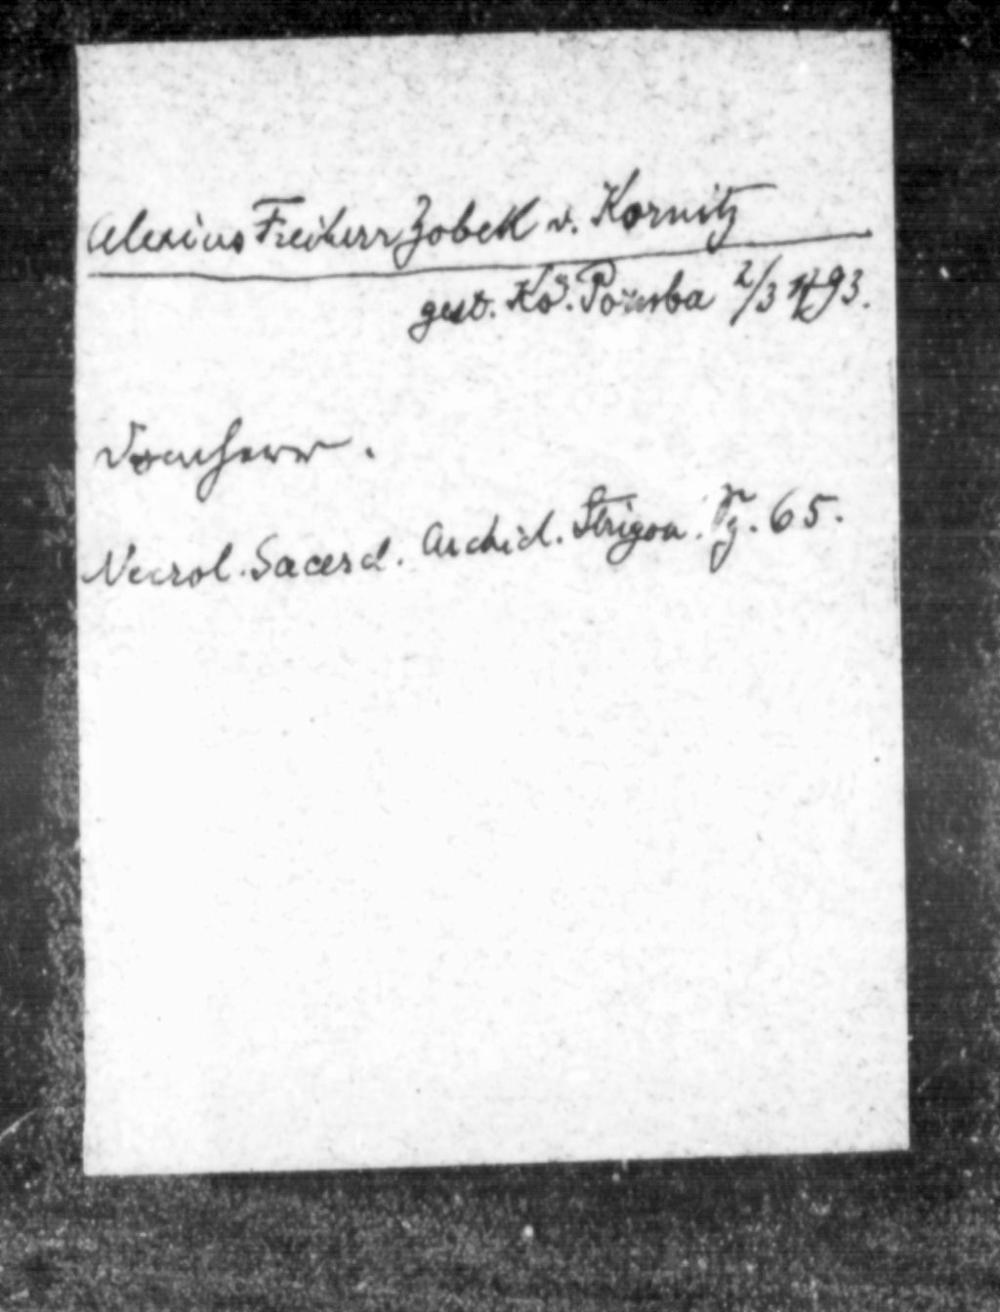 Alexius Freiherr Zobek v. Kornitz
gest. Kö. Poremba 2/3 1793.
Domherr.
Necrol. Sacerd. Archid. Strigon. Pg. 65.